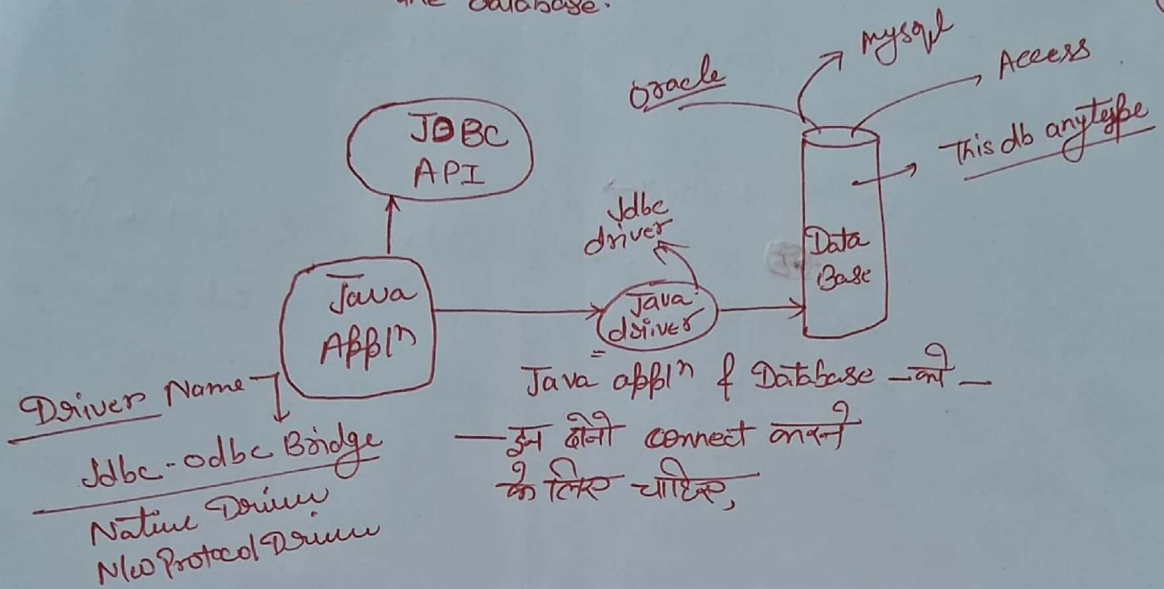 the database.
Oracle
Mysql
Access
This db anytype
JDBC
API
Jdbc
driver
Data
Base
Java
Appln
Java
driver
Java appln & Database को
इन दोनो connect करने
के लिए चाहिए,
Driver Name
Jdbc-odbc Bridge
Native Driver
N/w Protocol Driver